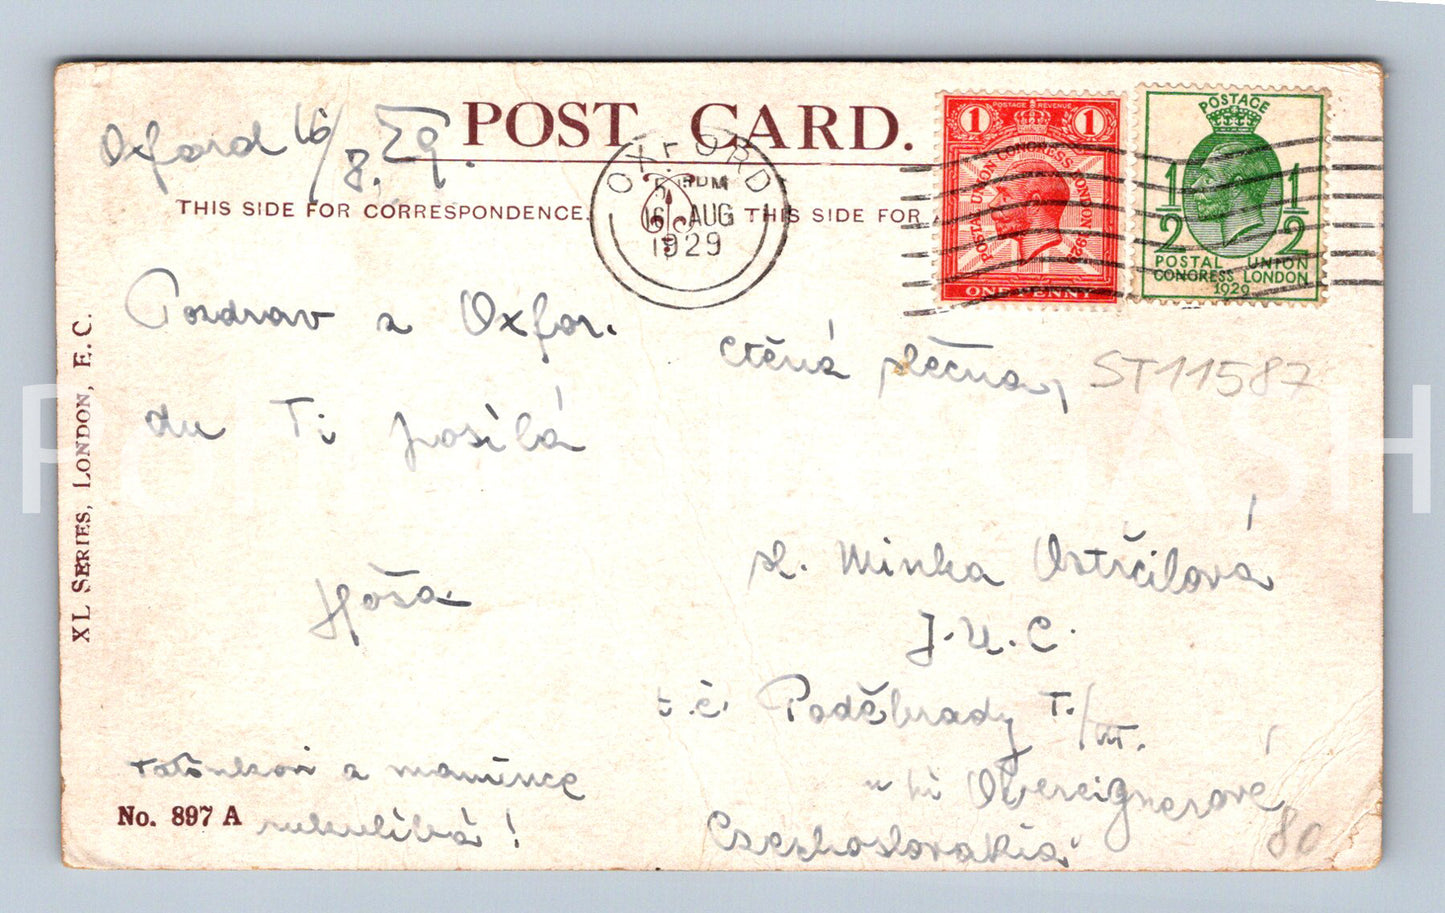 POST CARD.
Oxford 16/8. 29.
THIS SIDE FOR CORRESPONDENCE.
THIS SIDE FOR
OXFORD
5 PM
16 AUG
1929
POSTAGE REVENUE
1 1
POSTAL UNION CONGRESS LONDON 1929
ONE PENNY
POSTAGE
1/2 1/2
POSTAL UNION
CONGRESS LONDON
1929
Pozdrav z Oxfor.
du Ti posílá
tatínkovi a mamince
rukulíbá!
ctěná slečna,
ST11587
sl. Minka Ostrčilová
J.U.C.
t.č. Poděbrady T./III.
u pí Obereignerové
Czechoslovakia
80
XL SERIES, LONDON, E.C.
No. 897 A